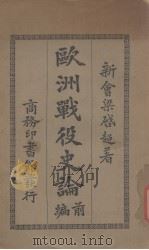 新會梁啟超著
歐洲戰役史論
前編
商務印書館發行